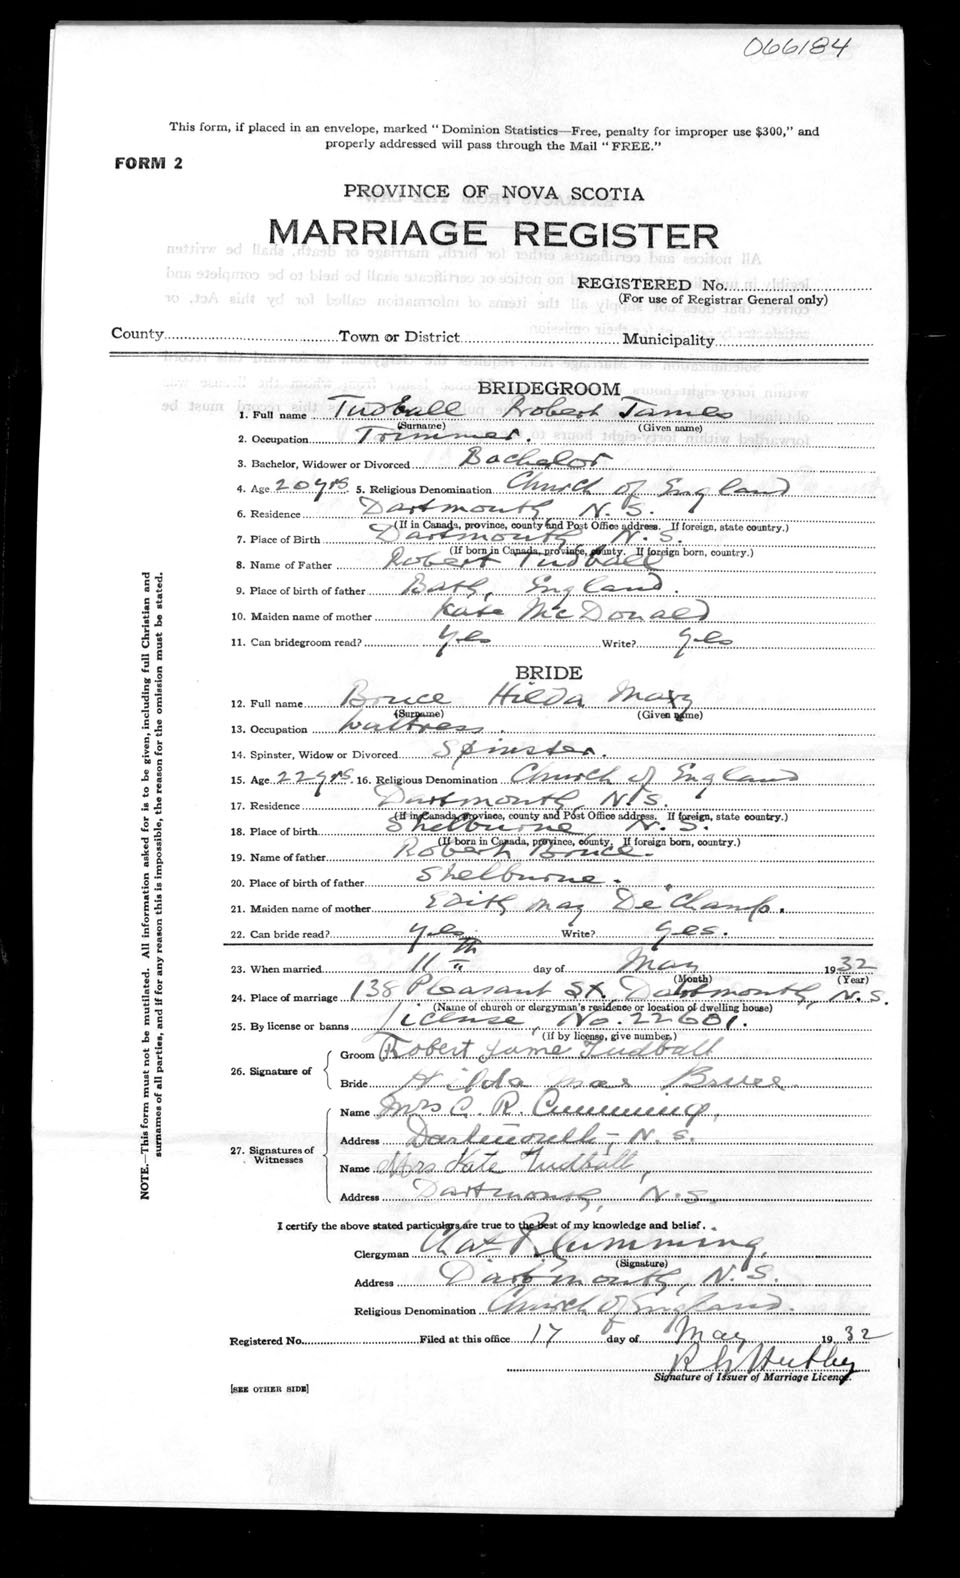 066184
This form, if placed in an envelope, marked "Dominion Statistics—Free, penalty for improper use $300," and
properly addressed will pass through the Mail "FREE."
FORM 2
PROVINCE OF NOVA SCOTIA
MARRIAGE REGISTER
REGISTERED No.
(For use of Registrar General only)
County Town or District Municipality
BRIDEGROOM
1. Full name Tudball Robert James
(Surname) (Given name)
2. Occupation Trimmer.
3. Bachelor, Widower or Divorced Bachelor
4. Age 20 yrs 5. Religious Denomination Church of England
6. Residence Dartmouth N. S.
(If in Canada, province, county and Post Office address. If foreign, state country.)
7. Place of Birth Dartmouth N. S.
(If born in Canada, province, county. If foreign born, country.)
8. Name of Father Robert Tudball
9. Place of birth of father Bath, England.
10. Maiden name of mother Kate McDonald
11. Can bridegroom read? Yes Write? Yes
BRIDE
12. Full name Bruce Hilda May
(Surname) (Given name)
13. Occupation Waitress.
14. Spinster, Widow or Divorced Spinster.
15. Age 22 yrs. 16. Religious Denomination Church of England
17. Residence Dartmouth, N.S.
(If in Canada, province, county and Post Office address. If foreign, state country.)
18. Place of birth Shelburne, N. S.
(If born in Canada, province, county. If foreign born, country.)
19. Name of father Robert Bruce.
20. Place of birth of father Shelburne.
21. Maiden name of mother Edith May De'Champ.
22. Can bride read? Yes. Write? Yes.
23. When married 11th day of May 1932
(Month) (Year)
24. Place of marriage 138 Pleasant St. Dartmouth, N.S.
(Name of church or clergyman's residence or location of dwelling house)
25. By license or banns License, No. 22601.
(if by license, give number.)
26. Signature of
Groom Robert Jame Tudball
Bride Hilda Mae Bruce
27. Signatures of Witnesses
Name Mrs C. R. Cumming,
Address Dartmouth, N. S.
Name Mrs Kate Tudball,
Address Dartmouth, N.S.
I certify the above stated particulars are true to the best of my knowledge and belief.
Clergyman Chas R Cumming,
(Signature)
Address Dartmouth, N. S.
Religious Denomination Church of England.
Registered No. Filed at this office 17 day of May 1932
Signature of Issuer of Marriage Licence.
[SEE OTHER SIDE]
NOTE.—This form must not be mutilated. All information asked for is to be given, including full Christian and
surnames of all parties, and if for any reason this is impossible, the reason for the omission must be stated.